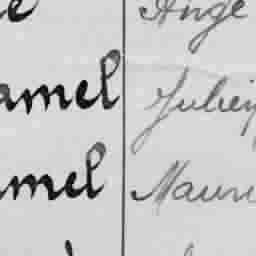 Ange
amel Julien
mel Mauri